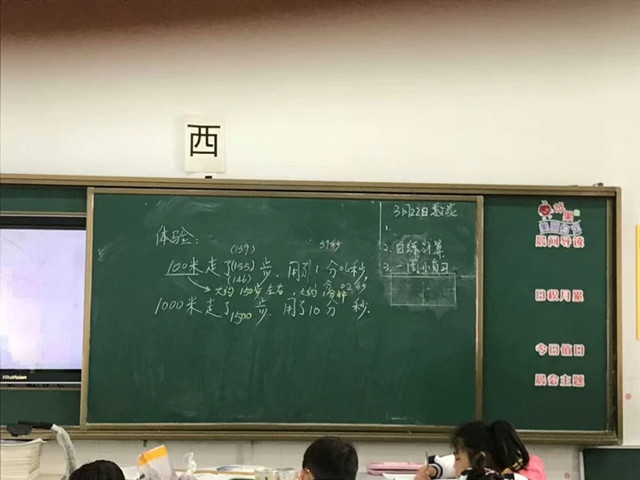 西
体验：
(159) 59秒
100米走了(155)步，用了1分06秒，
(146) 1分02秒
大约150步左右，大约1分钟
1000米走了1500步，用了10分 秒.
3月22日数学
1.
2.口练计算
3.一周小复习
晨间导读
日程月累
今日值日
晨会主题